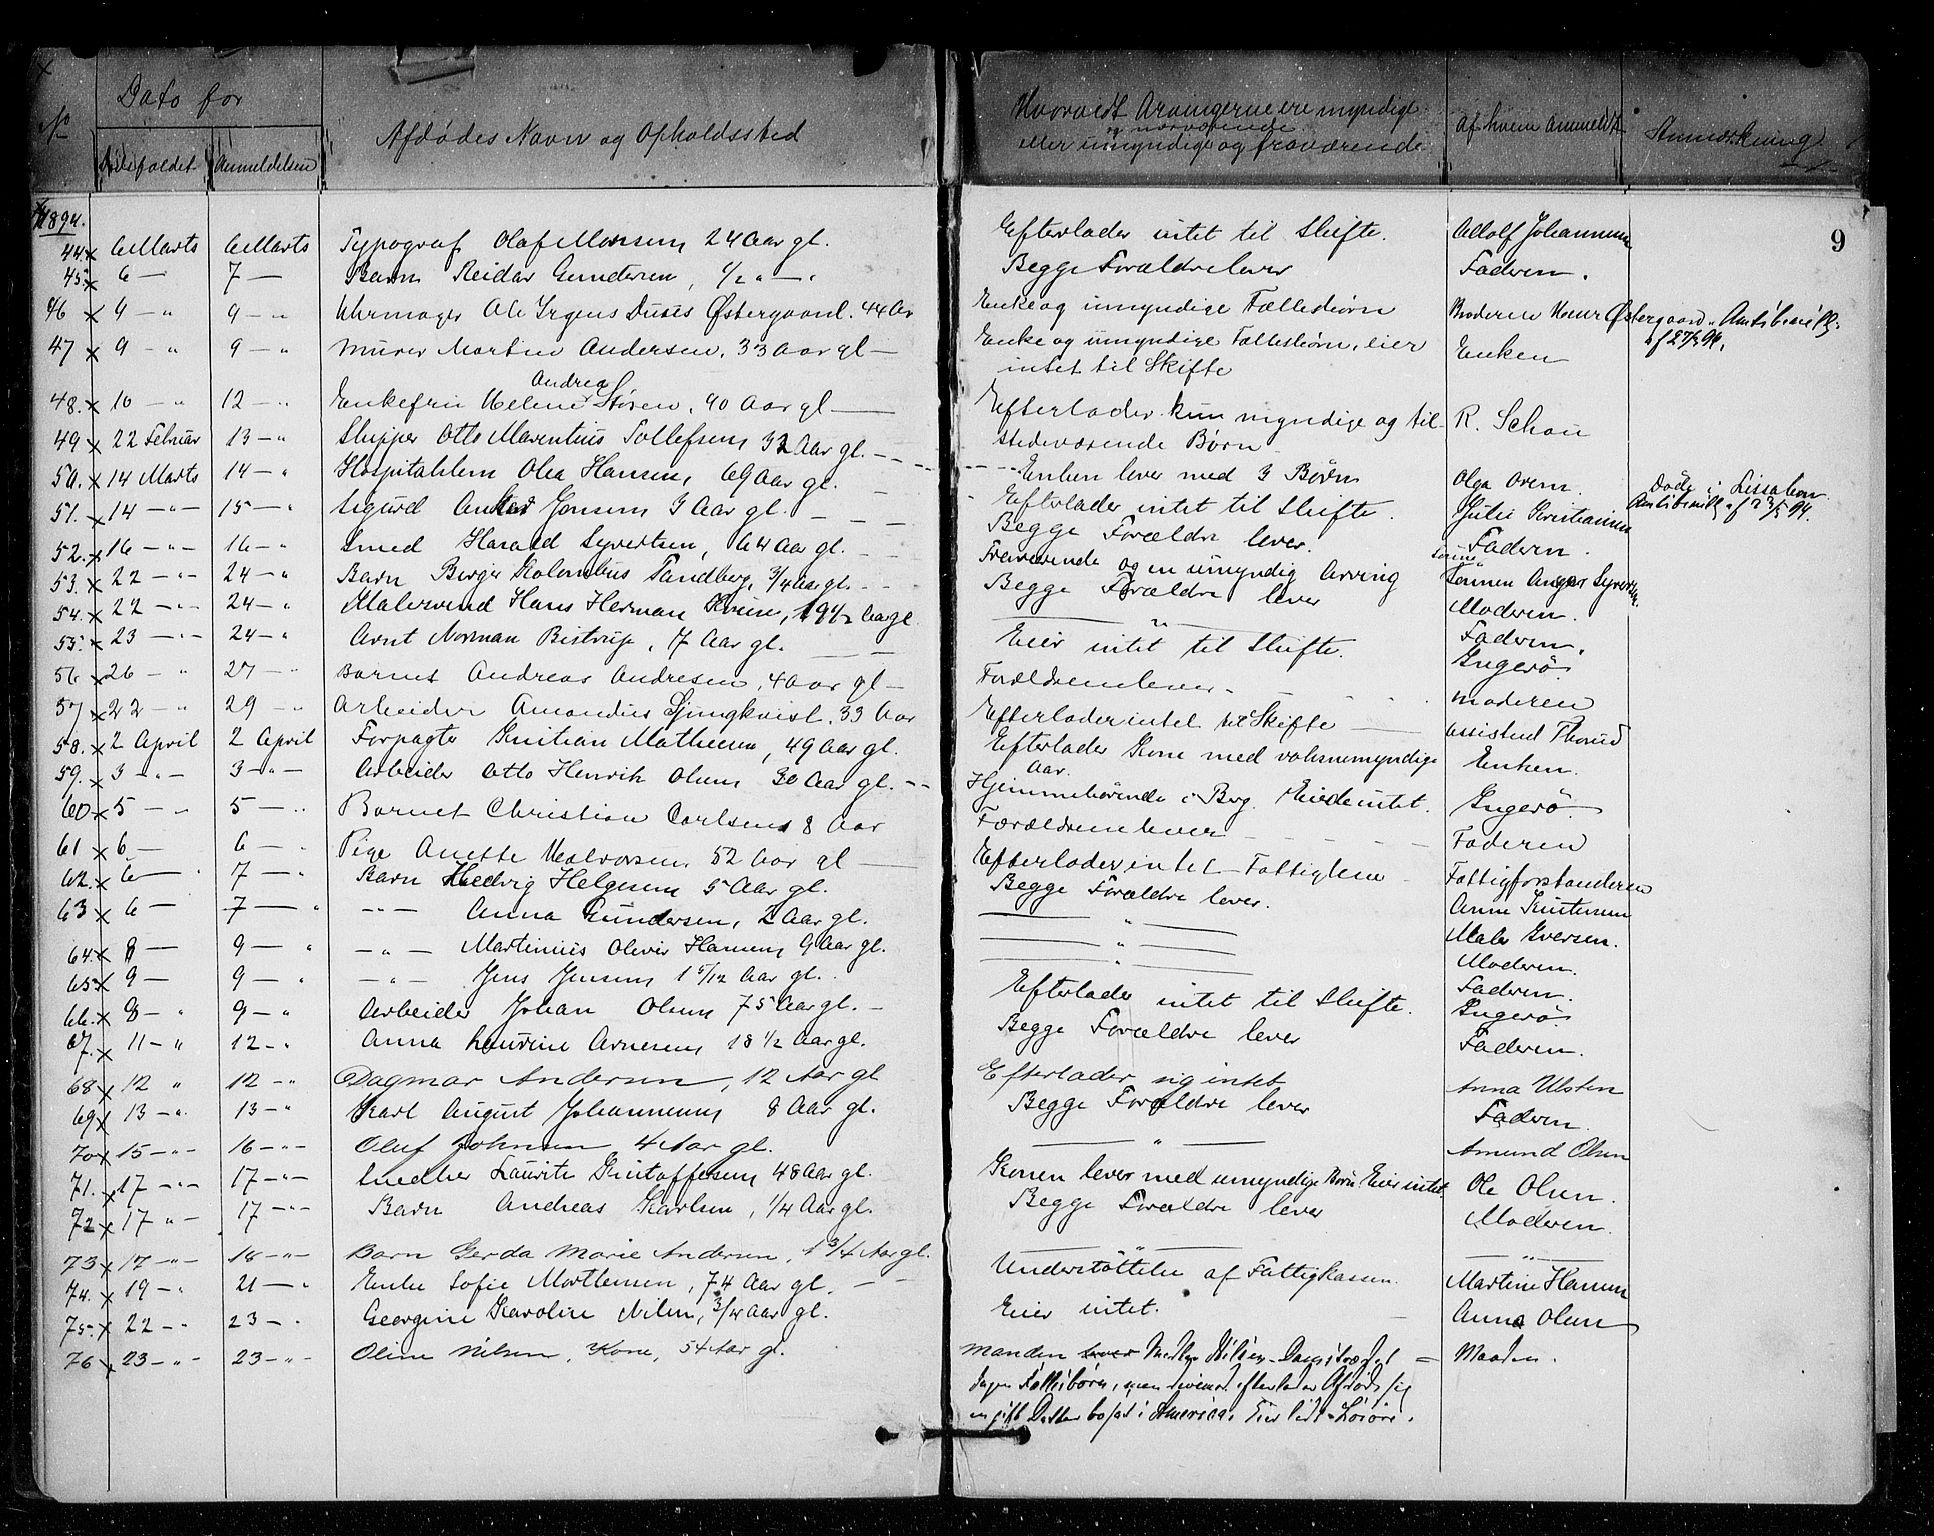 No
Dato for
Dødsfaldet
Anmeldelsen
Afdødes Navn og Opholdssted
Hvorvidt Arvingerne ere myndige
og nærværende
eller umyndige og fraværende
Af hvem Anmeldt
Anmærkning
9
1894.
44. 6 Marts 6 Marts Typograf Olaf Monsen 24 Aar gl. Efterlader intet til Skifte. Adolf Johannesen
45. 6 — 7 — Barn Reidar Gundersen, 1/2 " — " Begge Forældre lever Faderen.
46 9 — " 9 — " Uhrmager Ole Irgens Østergaard. 44 Aar Enke og umyndige Fællesbørn Broderen Østergaard.
47 9 — " 9 — " Murer Martin Andersen, 33 Aar gl — Enke og umyndige Fællesbørn, eier Enken
intet til Skifte
Andrea
48. 10 — " 12 — " Enkefru Helene Støren, 90 Aar gl — Efterlader kun myndige og til- R. Schou
stedeværende Børn
49 22 Februar 13 — " Skipper Otto Marentius Tollefsen 32 Aar gl. Enken lever med 3 Børn Olga Døde i Lissabon
50. 14 Marts 14 — " Hospitalslem Olea Hansen, 69 Aar gl. Efterlader intet til Skifte. Julie Kristiansen
51. 14 — " — 15 — " Sigurd Jonsen 3 Aar gl. Begge Forældre lever. Faderen.
52. 16 — " — 16 — " Smed Harald Syvertsen, 64 Aar gl. Fraværende og en umyndig Arving Sønnen Syvertsen.
53. 22 — " — 24 — " Barn Birger Kolombus Tandberg, 3/4 Aar gl. Begge Forældre lever Moderen.
54. 22 — " — 24 — " Malersvend Hans Herman 19 1/2 Aar gl. — " — Faderen.
55. 23 — " — 24 — " Arnt Norman Bistrup, 17 Aar gl. Eier intet til Skifte. Ingerø.
56 26 — " 27 — " Barnet Andreas Andresen, 4 Aar gl — Forældrene lever — Moderen
57 22 — " 29 — " Arbeider Amandus Ljungkvist. 33 Aar Efterlader intet til Skifte Assistent Thorud
58. 2 April 2 April Forpagter Kristian Mathiesen, 49 Aar gl. Efterlader Kone med voksne myndige Enken.
59. 3 — " — 3 — " — Arbeider Otto Henrik Olsen 30 Aar gl. Hjemmehørende i Berg. Eiede intet. Ingerø.
60 5 — " 5 — " Barnet Christian Carlsen 8 Aar Forældrene lever Faderen
61 6 — 6 — " Pige Anette Halvorsen 52 Aar gl Efterlader intet Fattiglem Fattigforstanderen
62. 6 — " 7 — " Barn Hedvig Helgesen 5 Aar gl. Begge Forældre lever. Anne Kristensen
63 6 — 7 — " — " — Anna Gundersen, 2 Aar gl. — " — Maler Iversen.
64. 8 — 9 — " — " — Martinius Oliver Hansen 9 Aar gl. — " — Moderen.
65. 9 — 9 — " — " — Jens Jensen 1 5/12 Aar gl. — " — Faderen.
66. 8 — " 9 — " Arbeider Johan Olsen 75 Aar gl. — Efterlader intet til Skifte. Ingerø.
67. 11 — " 12 — " Anna Laurine Arnesen 18 1/2 Aar gl. Begge Forældre lever Faderen.
68 12 " 12 — " Dagmar Andersen, 12 Aar gl Efterlader sig intet Anna Ulsten
69 13 — " 13 — " Karl August Johannesen 8 Aar gl. Begge Forældre lever Faderen.
70 15 — " — 16 — " — Oluf Johnsen 4 Aar gl. — " — Amund Olsen
71. 17 — " — 17 — " — Snedker Laurits Kristoffersen 48 Aar gl. Konen lever med umyndige Børn Eier intet Ole Olsen.
72 17 " — 17 — " — Barn Andreas Karlsen, 1/4 Aar gl. Begge Forældre lever Moderen.
73 17 — " — 18 — " — Barn Gerda Marie Andersen, 1 3/4 Aar gl. — " — — " —
74. 19 — " 21 — " Enke Sofie Mortensen, 74 Aar gl. Understøttelse af Fattigkassen. Martine Hansen
75. 22 — " 23 — " Georgine Karoline Nilsen, 3/4 Aar gl. Eier intet. Anna Olsen
76 23 — " — 23 — " — Oline Nilsen, Kone, 54 Aar gl. Manden lever Manden.
Fællesbørn, men efterlader Afdøde sig
en gift Datter bosat i Amerika. Eier lidt Løsøre.